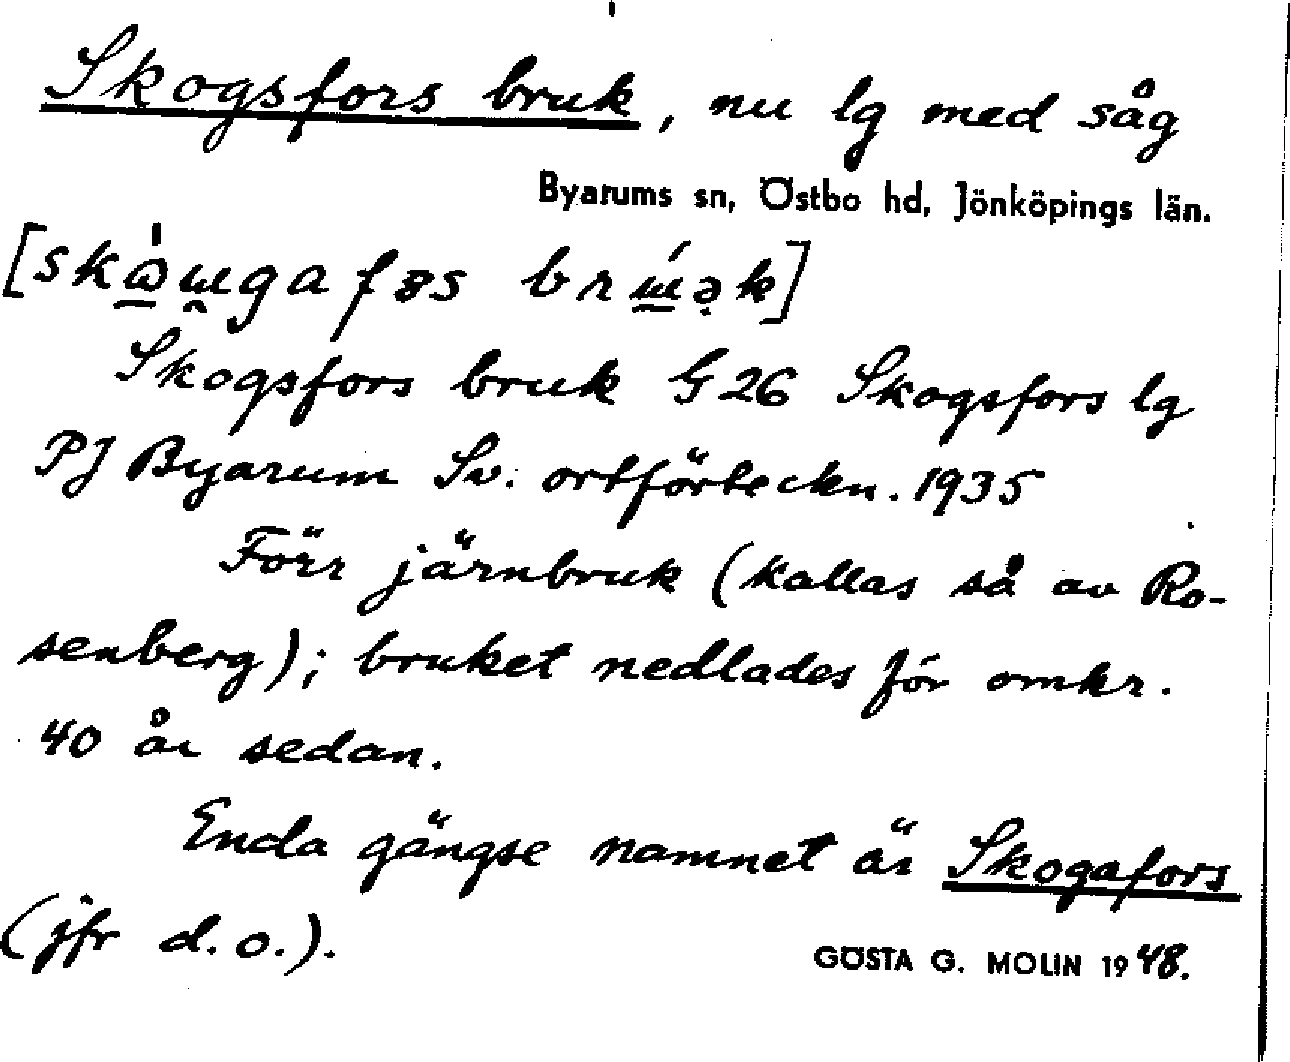 Skogsfors bruk, nu lg med såg
Byarums sn, Östbo hd, Jönköpings län.
Skogsfors bruk G 26 Skogsfors lg
PJ Byarum Sv. ortförteckn. 1935
Förr järnbruk (kallas så av Ro-
senberg); bruket nedlades för omkr.
40 år sedan.
Enda gängse namnet är Skogafors
(jfr d. o.).
GÖSTA G. MOLIN 1948.